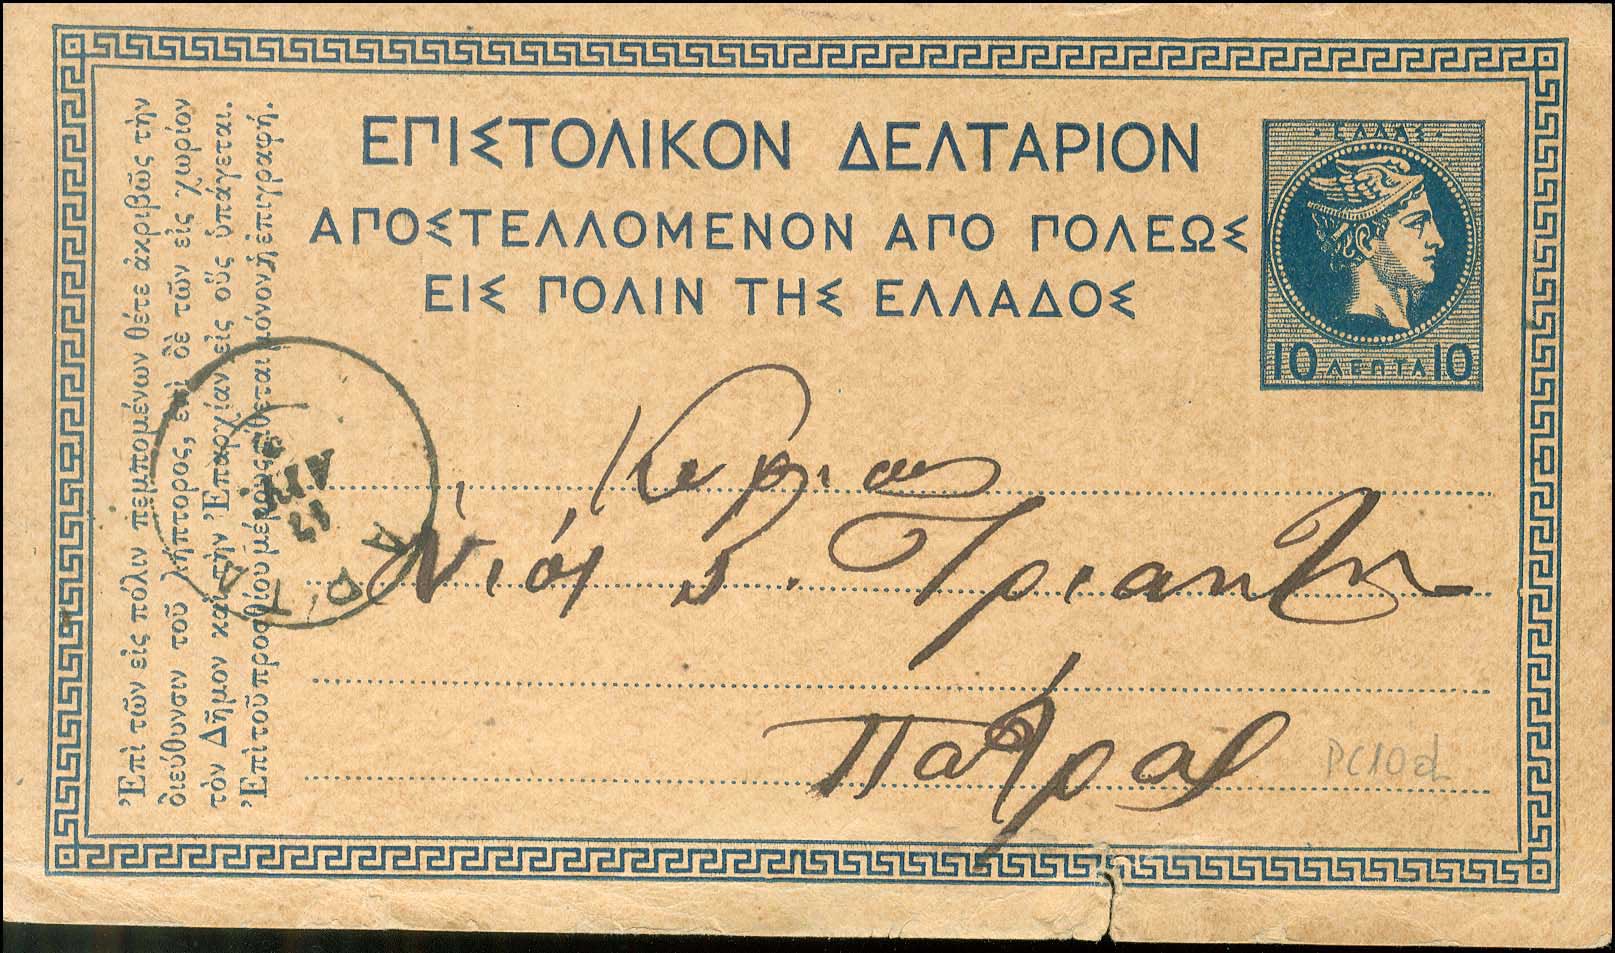 ΕΠΙΣΤΟΛΙΚΟΝ ΔΕΛΤΑΡΙΟΝ
ΑΠΟΣΤΕΛΛΟΜΕΝΟΝ ΑΠΟ ΠΟΛΕΩΣ
ΕΙΣ ΠΟΛΙΝ ΤΗΣ ΕΛΛΑΔΟΣ
ΕΛΛΑΣ
10 ΛΕΠΤΑ 10
Ἐπὶ τῶν εἰς πόλιν πεμπομένων θέτε ἀκριβῶς τὴν
διεύθυνσιν τοῦ λήπτορος, ἐπὶ δὲ τῶν εἰς χωρίον
τὸν Δῆμον καὶ τὴν Ἐπαρχίαν εἰς οὓς ὑπάγεται.
Ἐπὶ τοῦ προσθίου μέρους τίθεται μόνον ἡ ἐπιγραφή.
Κύριον
Πάτρας
PC10d